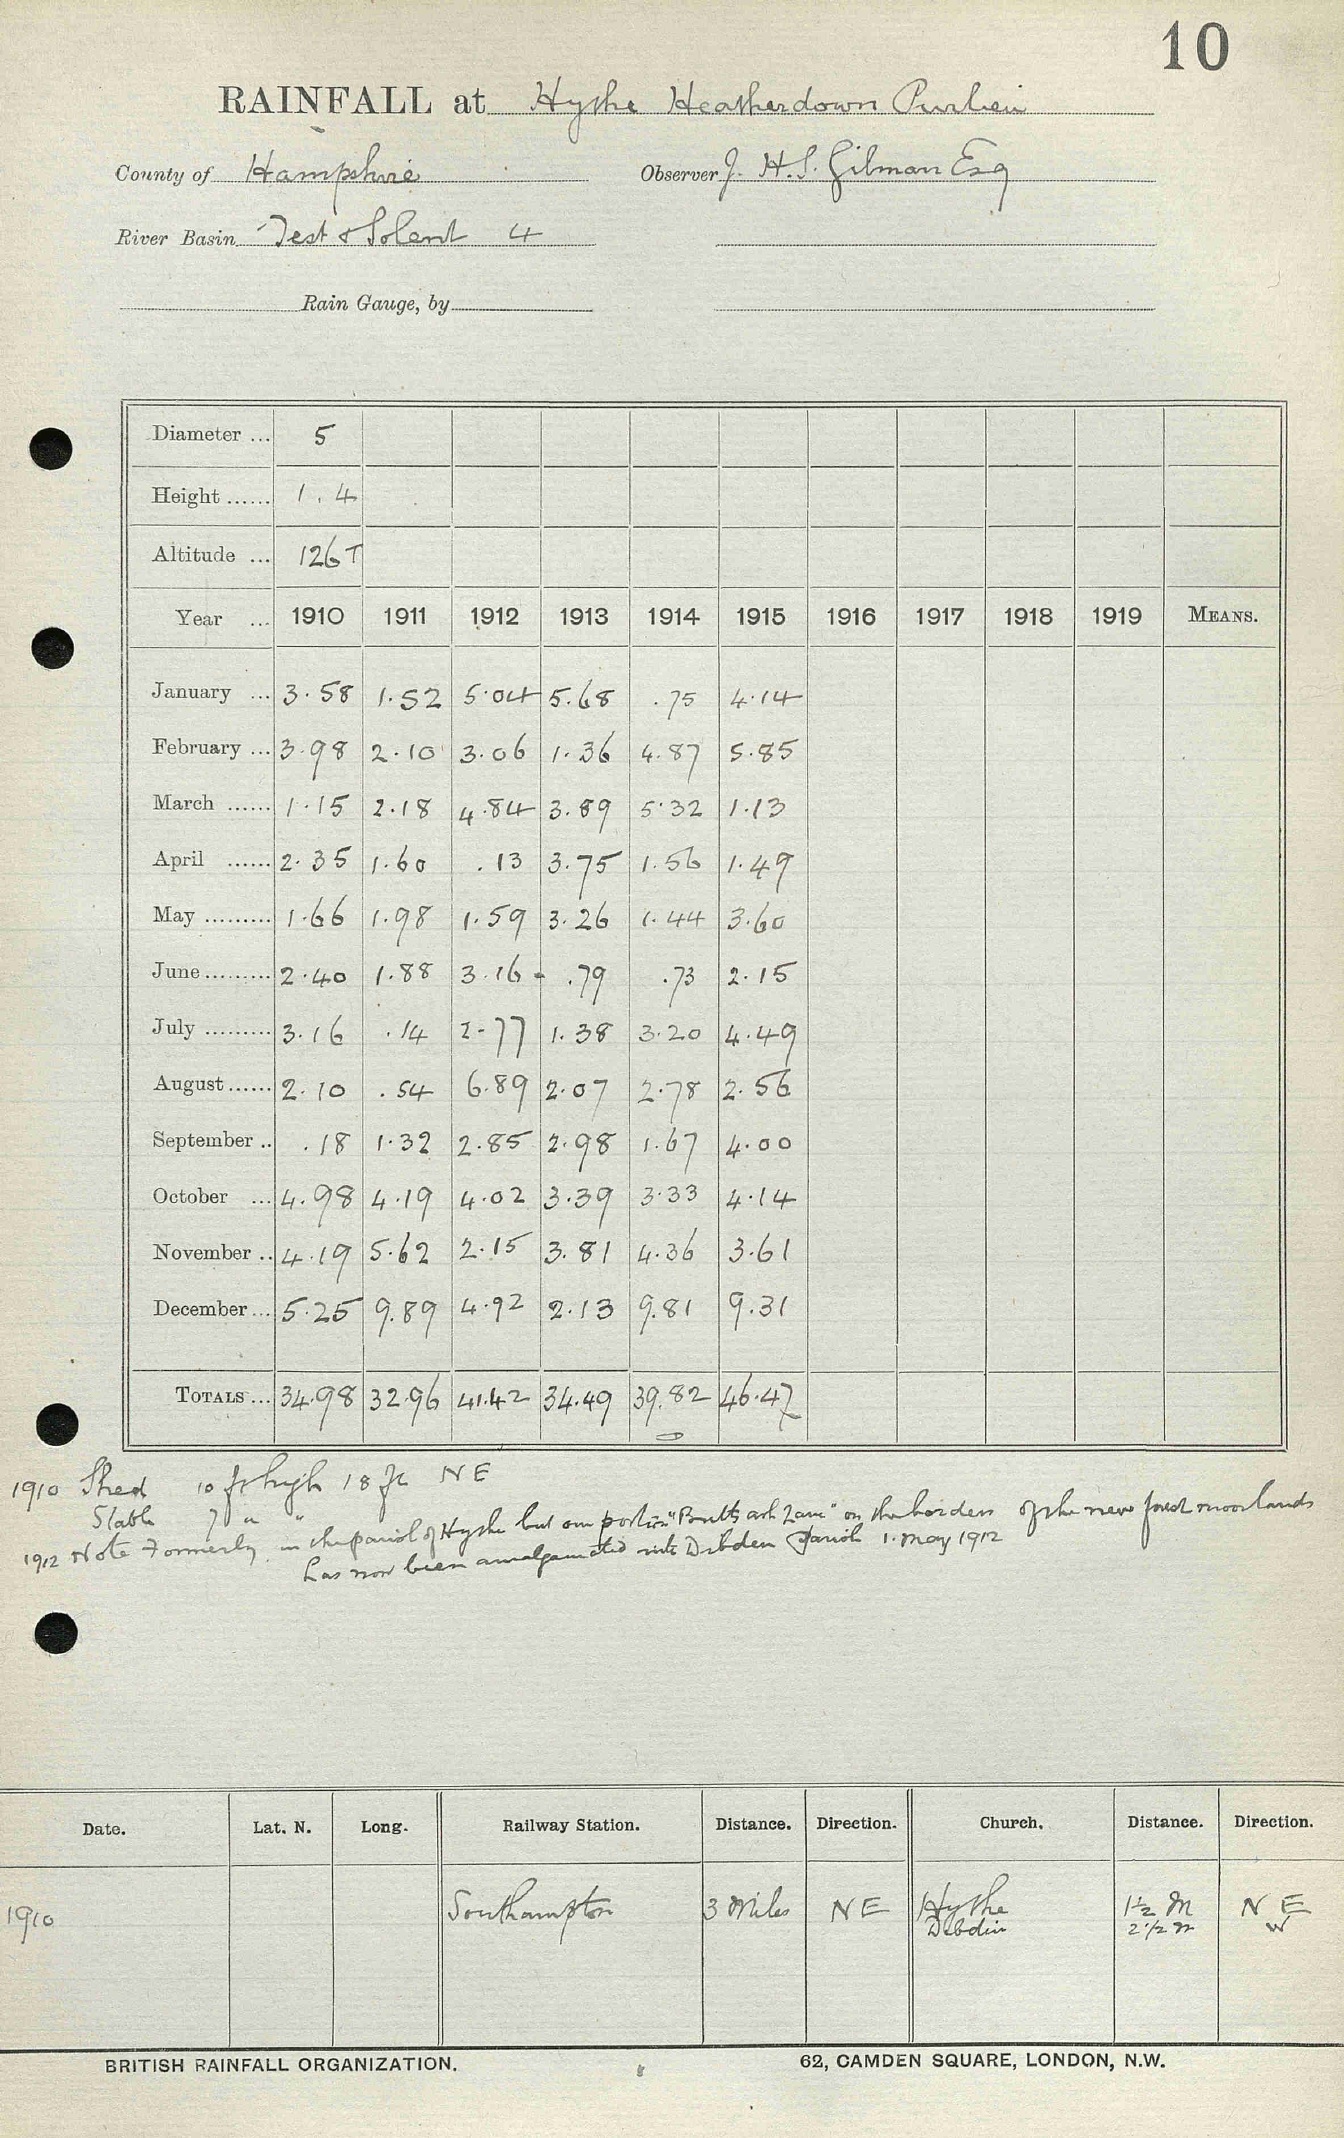 10
RAINFALL at Hythe Heatherdown Purlieu
County of Hampshire Observer J. H. S. Gilman Esq
River Basin Test & Solent 4
Rain Gauge, by
Diameter ... 5
Height ...... 1.4
Altitude ... 126 T
Year ... 1910 1911 1912 1913 1914 1915 1916 1917 1918 1919 MEANS.
January ... 3.58 1.52 5.04 5.68 .75 4.14
February ... 3.98 2.10 3.06 1.36 4.87 5.85
March ...... 1.15 2.18 4.84 3.89 5.32 1.13
April ...... 2.35 1.60 .13 3.75 1.56 1.49
May ......... 1.66 1.98 1.59 3.26 1.44 3.60
June ......... 2.40 1.88 3.16 .79 .73 2.15
July ......... 3.16 .14 2.77 1.38 3.20 4.49
August ...... 2.10 .54 6.89 2.07 2.78 2.56
September .. .18 1.32 2.85 2.98 1.67 4.00
October ... 4.98 4.19 4.02 3.39 3.33 4.14
November .. 4.19 5.62 2.15 3.81 4.36 3.61
December ... 5.25 9.89 4.92 2.13 9.81 9.31
TOTALS ... 34.98 32.96 41.42 34.49 39.82 46.47
1910 Shed 10 ft high 18 ft NE
Stable 7 " "
1912 Note Formerly in the parish of Hythe but our portion "Butts ash Lane" on the borders of the new forest moorlands
has now been amalgamated into Dibden Parish 1. May 1912
Date. Lat. N. Long. Railway Station. Distance. Direction. Church. Distance. Direction.
1910 Southampton 3 Miles NE Hythe 1½ M N E
Dibdin 2 1/2 m W
BRITISH RAINFALL ORGANIZATION. 62, CAMDEN SQUARE, LONDON, N.W.